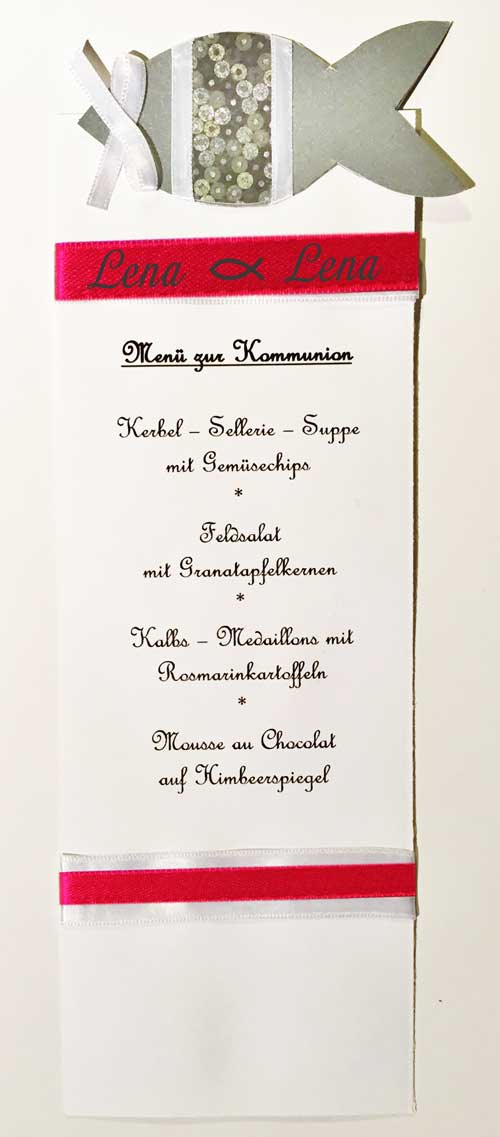 Lena Lena
Menü zur Kommunion
Kerbel – Sellerie – Suppe
mit Gemüsechips
*
Feldsalat
mit Granatapfelkernen
*
Kalbs – Medaillons mit
Rosmarinkartoffeln
*
Mousse au Chocolat
auf Himbeerspiegel